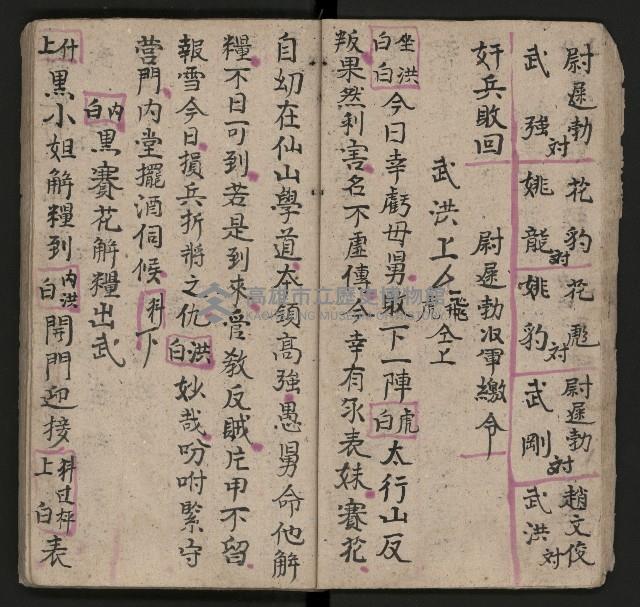 尉遲勃 花豹 花彪 尉遲勃 趙文俊
對 對 對 對 對
武強 姚龍 姚豹 武剛 武洪
奸兵敗回 尉遲勃收軍繳令
武洪上 飛虎仝上
坐洪白白今日幸虧母舅收下一陣虎白太行山反
叛果然利害名不虛傳幸有承表妹賽花
自幼在仙山學道本領高強愚舅命他解
糧不日可到若是到來管教反賊片甲不留
報雪今日損兵折將之仇洪白妙哉吩咐緊守
營門內堂擺酒伺候科下
內白黑賽花解糧出武
什上黑小姐解糧到內洪白開門迎接科过枰上白表
高雄市立歷史博物館
KAOHSIUNG MUSEUM OF HISTORY